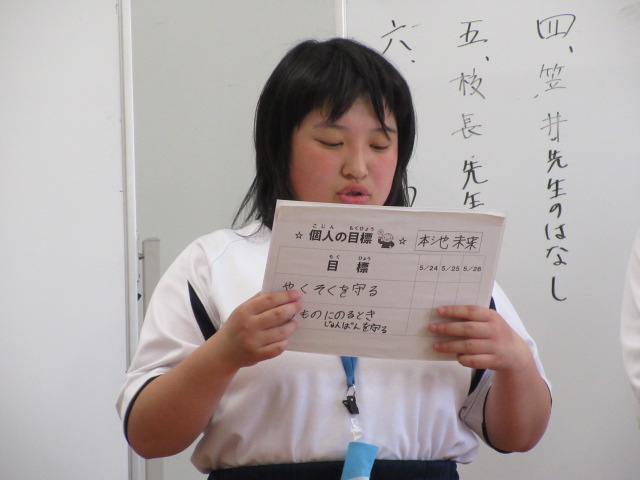 四、笠井先生のはなし
五、枝長先生
六、
こじん もくひょう
☆ 個人の目標 ☆
本池 未来
もく ひょう
目 標
5/24 5/25 5/26
やくそくを守る
ものにのるとき
じゅんばんを守る